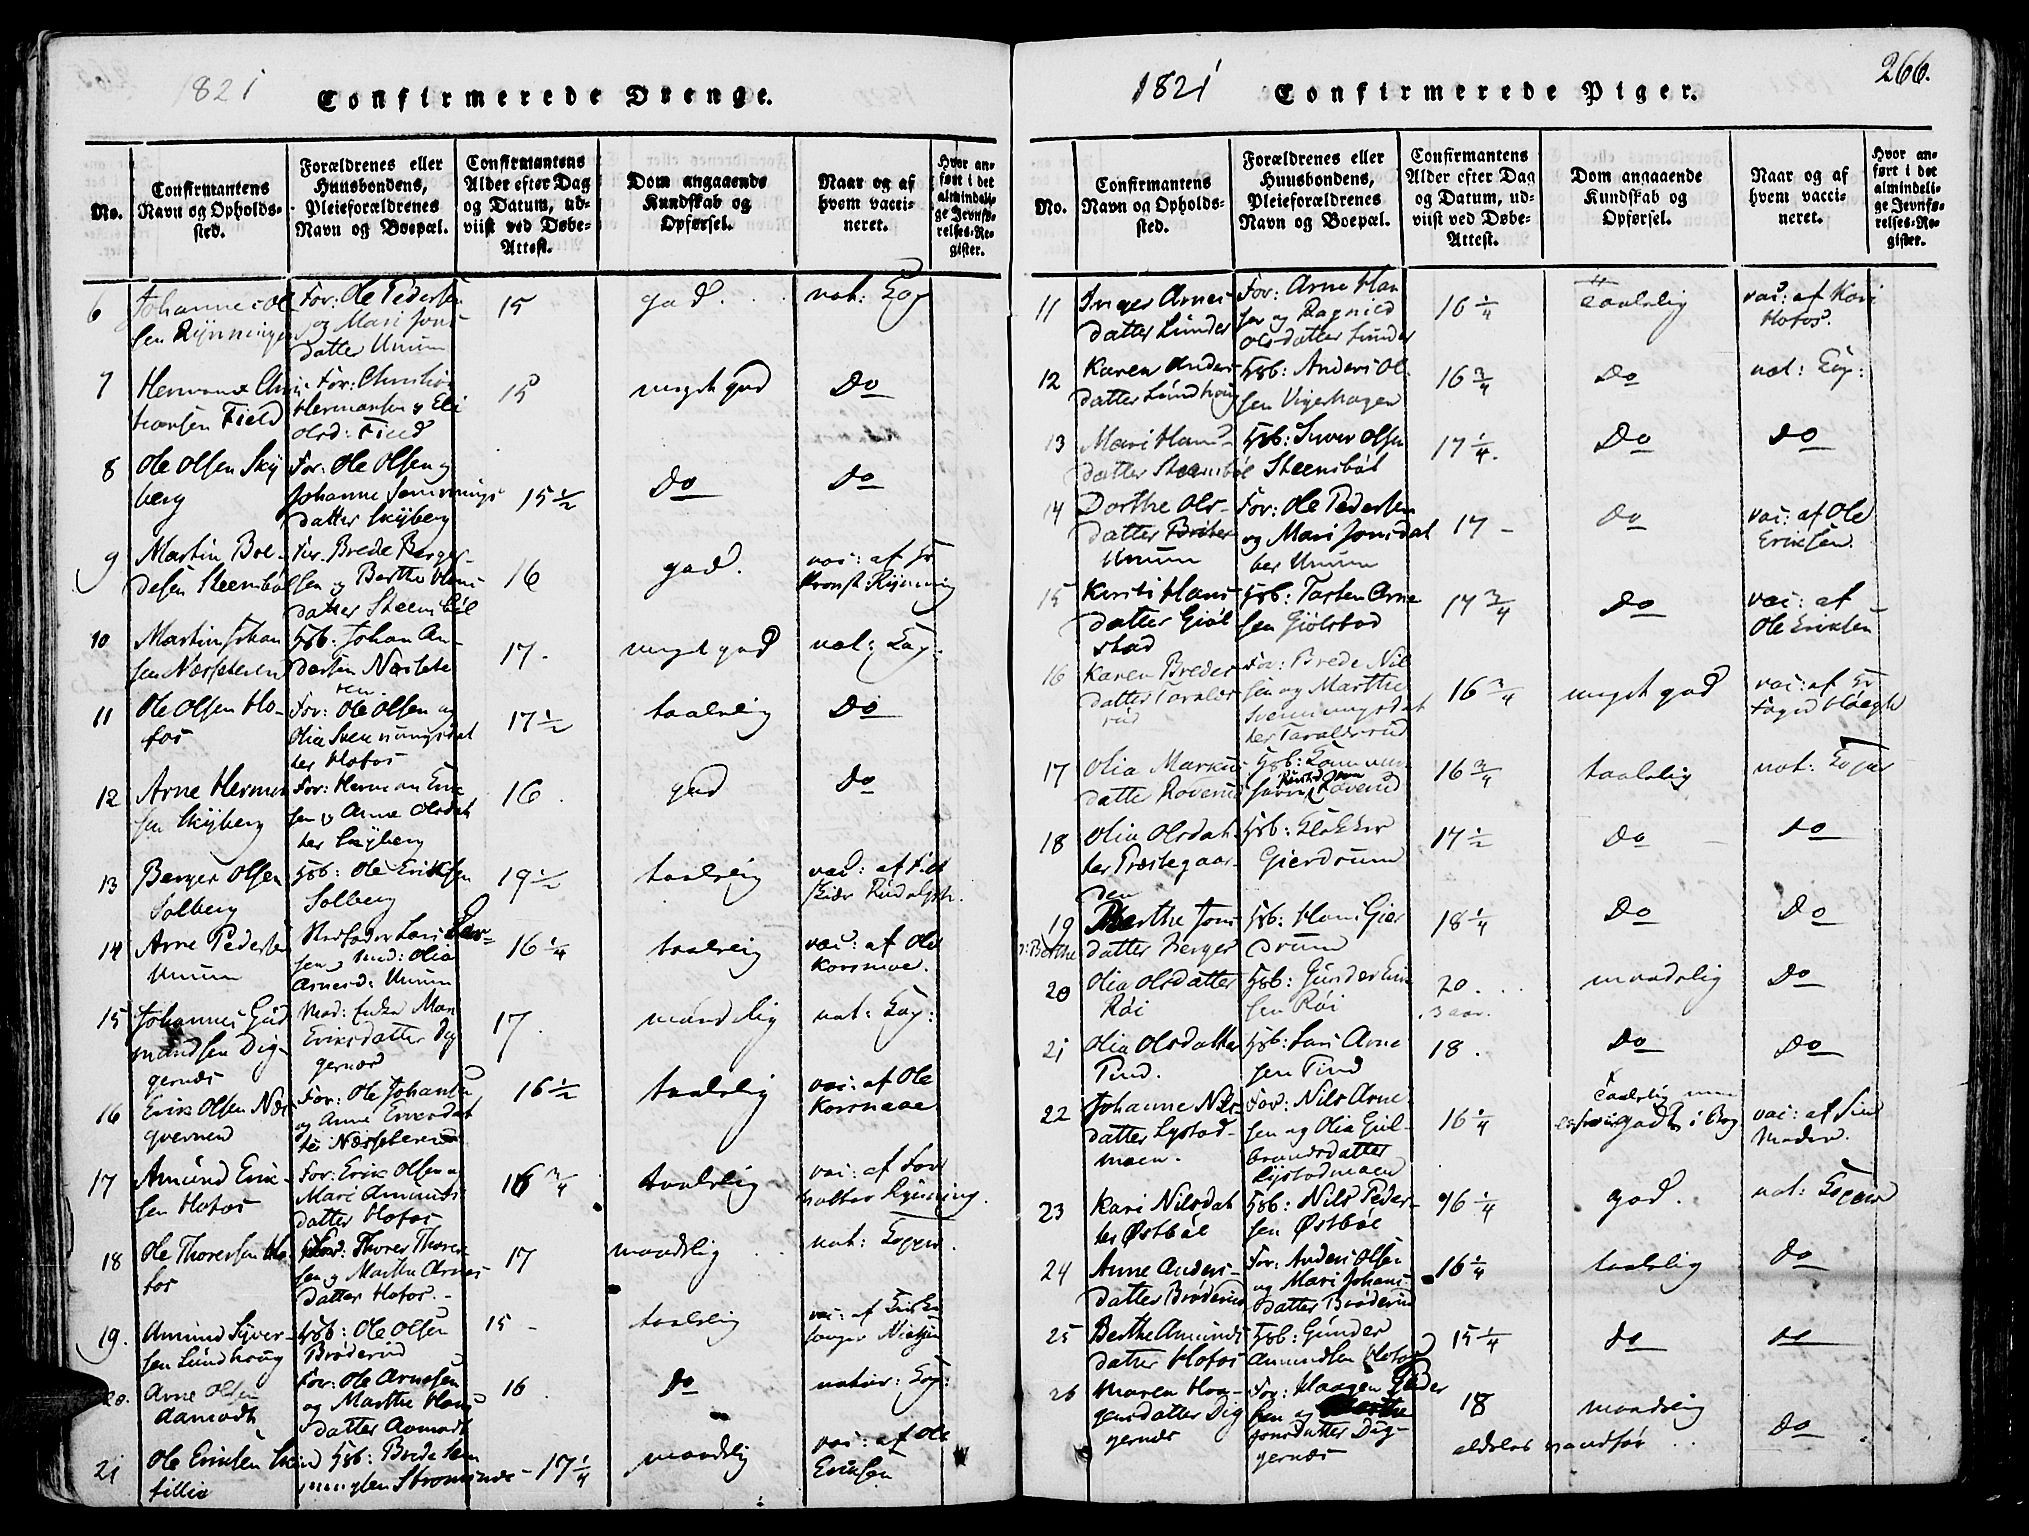 1821
Confirmerede Drenge.
No.
Confirmantens
Navn og Opholds-
sted.
Forældrenes eller
Huusbondens,
Pleieforældrenes
Navn og Boepæl.
Confirmantens
Alder efter Dag
og Datum, ud-
viist ved Døbe-
Attest.
Dom angaaende
Kundskab og
Opførsel.
Naar og af
hvem vacci-
neret.
Hvor an-
ført i det
almindeli-
ge Jevnfø-
relses-Re-
gister.
6
Johannes Ol
sen Rynningen
For: Ole Pedersen
og Mari Jons
datter Unum
15
god.
nat: Kop
7
Herman Chris
tiansen Field
For: Christian
Hermansen og Eli
Olsd: Field
15
meget god
Do
8
Ole Olsen Sky
berg
For: Ole Olsen og
Johanne Semmings
datter Skyberg
15 1/2
Do
Do
9
Martin Bre-
desen Steensbøl
For. Brede Berger
sen og Berthe Hans
datter Steensbøl
16
god.
vac: af Hr
Provst Rynning
10
Martin Johan
sen Næsseteren
Hsb: Johan An-
dersen Næssete
ren
17.
meget god
nat: Kop:
11
Ole Olsen Ho-
fos
For: Ole Olsen og
Olia Svenningsdat
ter Hofos
17 1/2
taalelig
Do
12
Arne Herman
sen Skyberg
For: Herman Erik
sen og Anne Olsdat
ter Skyberg
16.
god
Do
13
Berger Olsen
Solberg
Hsb: Ole Eriksen
Solberg
19 1/2
taalelig
14
Arne Pedersen
Unum
Stedfader Lars Lar-
sen og Mod: Olia
Arnesd: Unum
16 1/4
taalelig
vac: af Ole
Korsmoe.
15
Johannes Gud
mandsen Dig-
gernæs
Mod: Enke Mari
Eriksdatter Dig
gernæs
17.
maadelig
nat: Kop:
16
Erik Olsen Næs
qvernen
For: Ole Johansen
og Anne Iversdat
ter Næsseteren
16 1/2
taalelig
vac: af Ole
Korsmoe
17
Amund Erik-
sen Hofos
For: Erik Olsen og
Mari Amunds
datter Hofos
16 3/4
taalelig
vac: af For
valter Rynning.
18
Ole Thoresen Ho-
fos
For: Thorer Thorer
sen og Marthe Arnes
datter Hofos.-
17
maadelig
nat: Kopper.
19.
Amund Syver-
sen Lundhoug
Hsb: Ole Olsen
Brøderud
15 -
taalelig
vac: af Kirke
sanger Nielsen
20.
Arne Olsen
Aamodt
For: Ole Arnesen
og Marthe Hans
datter Aamodt
16
Do
natur: Kop:
21
Ole Eriksen
tillia
Hsb: Brede Sem
mingsen Strømsnes
- 17 1/4
maadelig
vac: af Ole
Eriksen
266.
1821
Confirmerede Piger.
No.
Confirmantens
Navn og Opholds-
sted.
Forældrenes eller
Huusbondens,
Pleieforældrenes
Navn og Boepæl.
Confirmantens
Alder efter Dag
og Datum, ud-
viist ved Døbe-
Attest.
Dom angaaende
Kundskab og
Opførsel.
Naar og af
hvem vacci-
neret.
Hvor an-
ført i det
almindeli-
ge Jevnfø-
relses-Re-
gister.
11
Inger Arnes
datter Lunder
For: Arne Han
sen og Ragnild
Olsdatter Lunder
16 1/4
taalelig
vac: af Kari
Hofos.
12
Karen Anders
datter Lundhoug
Hsb: Anders Ol
sen Vigerhagen
16 3/4
Do
nat: Kop:
13
Mari Hans
datter Steensbøl
Hsb: Sÿver Olsen
Steensbøl
17 1/4.
Do
Do
14
Dorthe Ols-
datter
Unum
For: Ole Pedersen
og Mari Jonsdat
ter Unum
17 -
Do
vac: af Ole
Eriksen.
15
Kirsti Hans
datter Giøl
stad
Hsb: Torsten Arne
sen Giølstad
17 3/4
Do
vac: af
Ole Eriksen
16
Karen Bredes
datter Taralds
rud
For: Brede Nil
sen og Marthe
Svenningsdat
ter Taraldsrud
16 3/4
meget god
vac: af Hr
Foged Høegh
17
Olia Markus
datter Roverud
16 3/4
taalelig
nat: Kopper
18
Olia Olsdat-
ter Præstegaar-
den
Hsb: Klokker
Gierdrum
17 1/2
Do
Do
19
Berthe Jons
datter Berger
Hsb: Hans Gier
drum
18 1/4
Do
Do
ɔ: Berthe
20
Olia Olsdatter
Røi
Hsb: Gunder Erik
sen Røi
20.
3 aar.
maadelig
Do
21
Olia Olsdatter
Tind.
Hsb: Lars Arne
sen Tind
18.
Do
Do
22
Johanne Nils
datter Lystad-
moen.
For: Nils Arne
sen og Olia Gul-
brandsdatter
Lystadmoen
16 1/4
taalelig men
godt i Bog
vac: af Sin
Moder.
23
Kari Nilsdat
ter Østbøl
Hsb: Nils Peder-
sen Østbøl
16 1/4
god.
nat: Kopper
24
Anne Anders-
datter Brøderud
For: Anders Olsen
og Mari Johans
datter Brøderud
16 1/4
taalelig
Do
25
Berthe Amunds
datter Hofos
Hsb: Gunder
Amundsen Hofos
15 1/4
Do
Do
26
Maren Haa-
gensdatter Dig
gernæs
For: Haagen Peder
sen og Marthe
Jonsdatter Dig-
gernæs
18
maadelig
Do